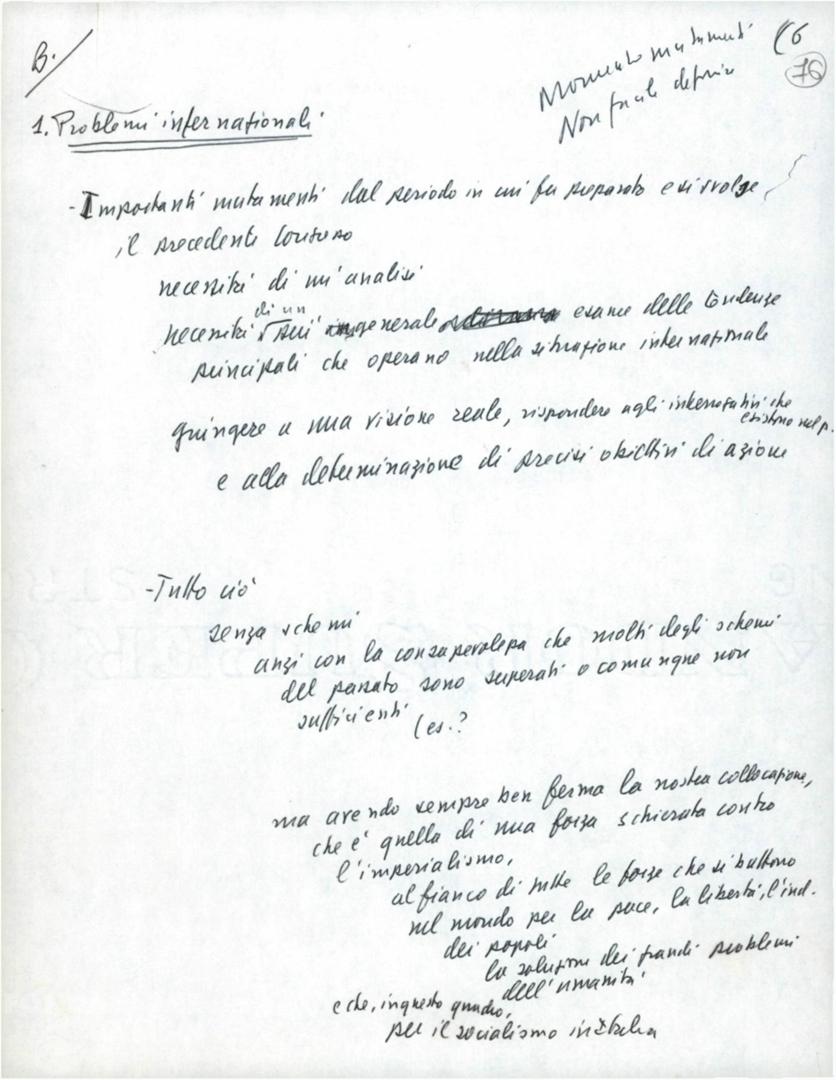 B.
Momento mutamenti
Non facile definire
76
1. Problemi internazionali
- Importanti mutamenti dal periodo in cui fu preparato e si svolse,
il precedente Congresso
necessità di un'analisi
di un
necessità più generale esame delle tendenze
principali che operano nella situazione internazionale
giungere a una visione reale, rispondere agli interrogativi che
esistono nel p.
e alla determinazione di precisi obiettivi di azione
- Tutto ciò
senza schemi
anzi con la consapevolezza che molti degli schemi
del passato sono superati o comunque non
sufficienti (es.?
ma avendo sempre ben ferma la nostra collocazione,
che è quella di una forza schierata contro
l'imperialismo,
al fianco di tutte le forze che si battono
nel mondo per la pace, la libertà, l'ind.
dei popoli
la soluzione dei grandi problemi
dell'umanità
e che, in questo quadro,
per il socialismo in Italia